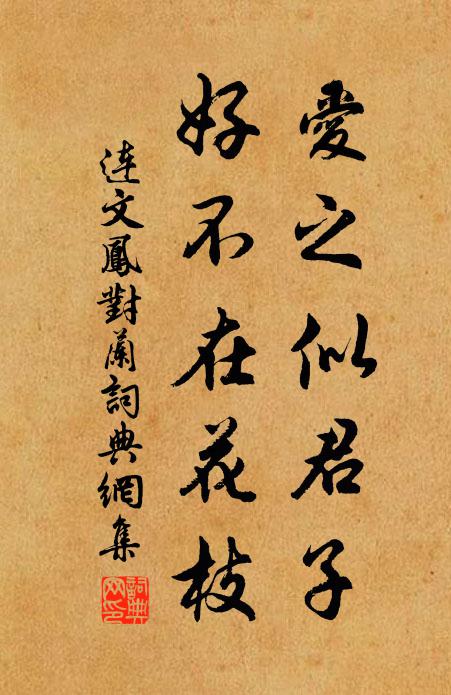 愛之似君子
好不在花枝
連文鳳對蘭詞典網集
詞典网印